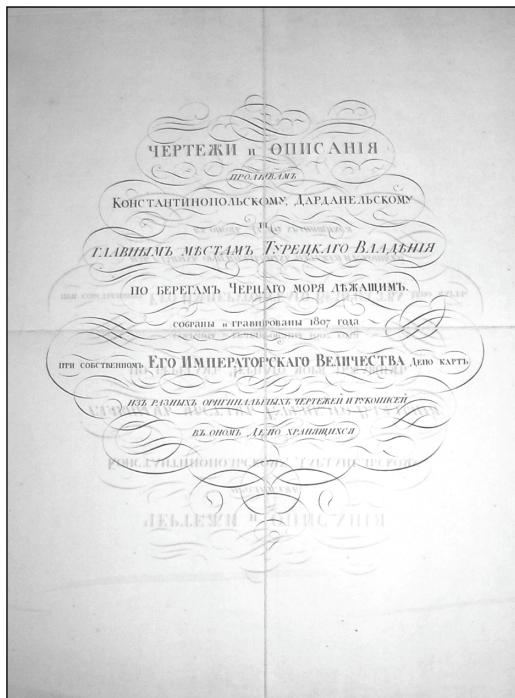 ЧЕРТЕЖИ и ОПИСАНІЯ
ПРОЛИВАМЪ
КОНСТАНТИНОПОЛЬСКОМУ, ДАРДАНЕЛЬСКОМУ
И
ГЛАВНЫМЪ МѢСТАМЪ ТУРЕЦКАГО ВЛАДѢНІЯ
ПО БЕРЕГАМЪ ЧЕРНАГО МОРЯ ЛѢЖАЩИМЪ.
СОБРАНЫ и ГРАВИРОВАНЫ 1807 ГОДА
ПРИ СОБСТВЕННОМЪ ЕГО ИМПЕРАТОРСКАГО ВЕЛИЧЕСТВА ДЕПО КАРТЪ
ИЗЪ РАЗНЫХЪ ОРИГИНАЛЬНЫХЪ ЧЕРТЕЖЕЙ И РУКОПИСЕЙ
ВЪ ОНОМЪ ДЕПО ХРАНЯЩИХСЯ